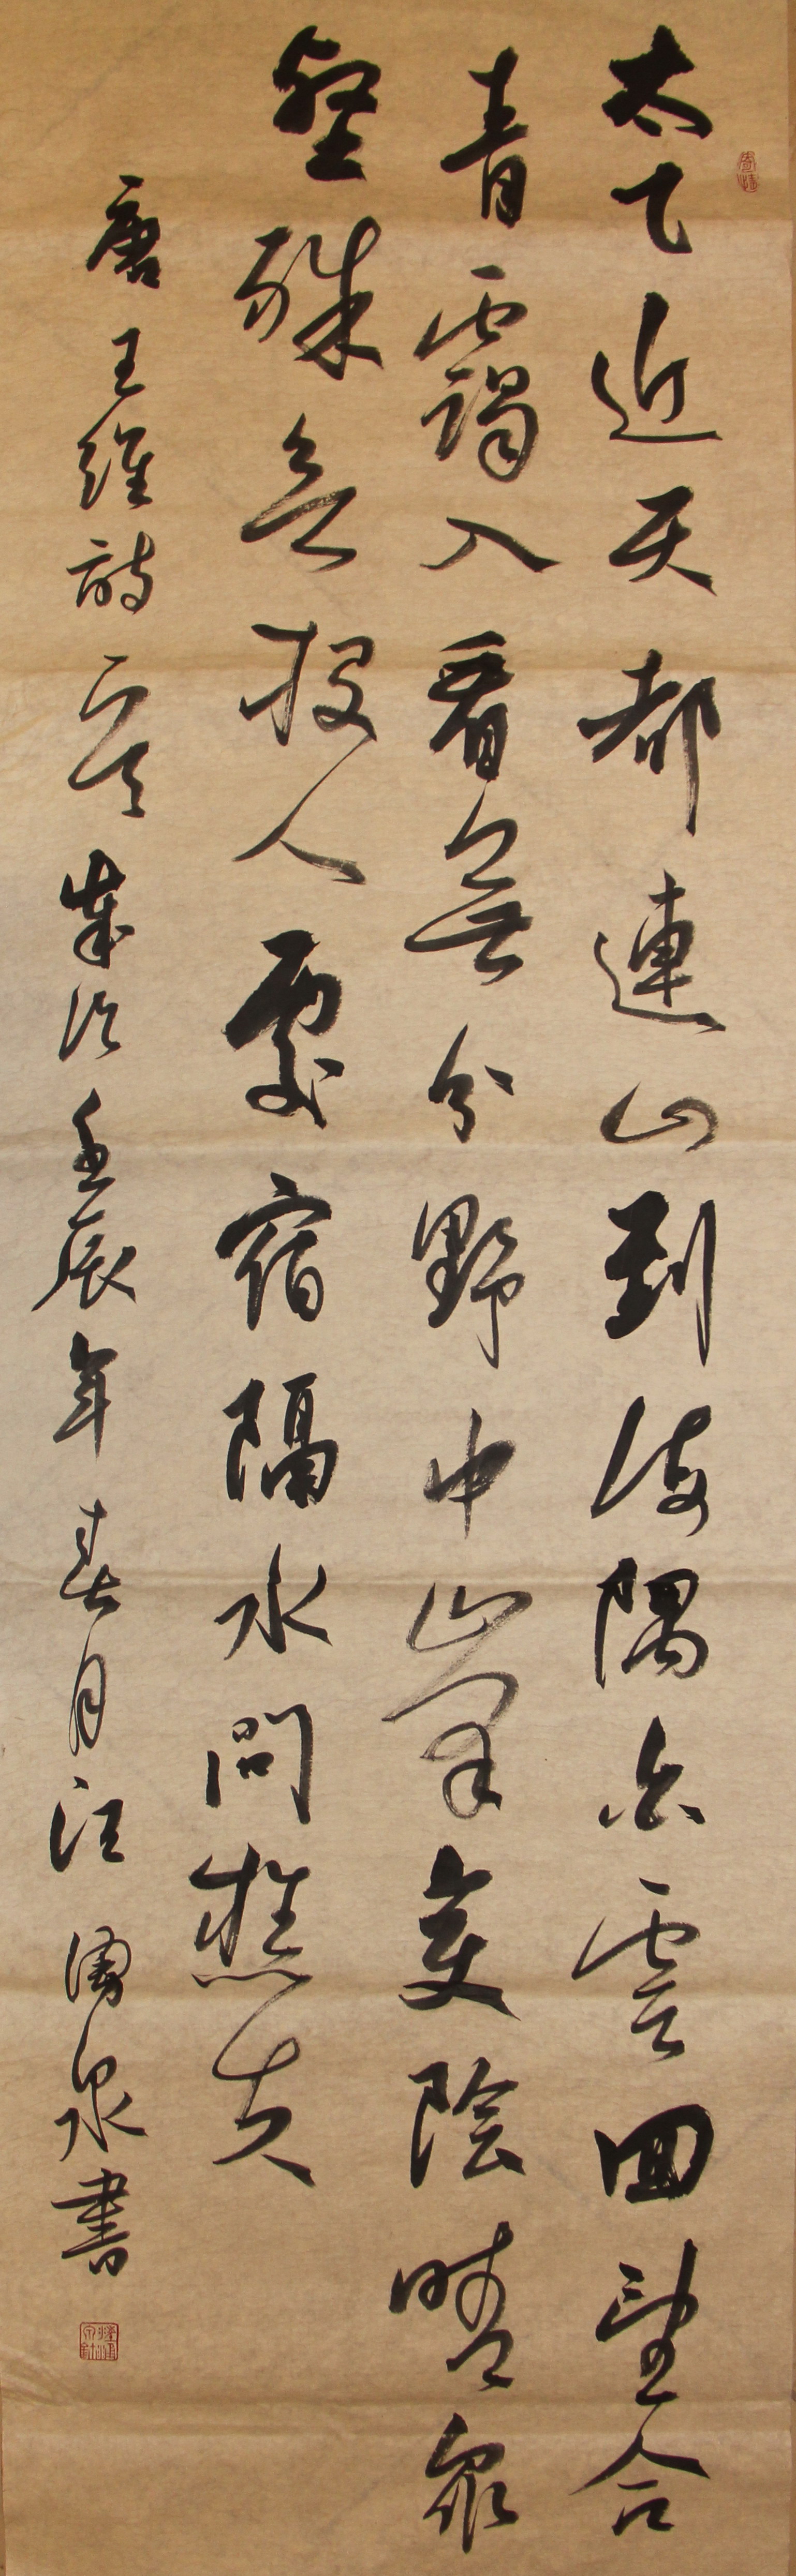 太乙近天都連山到海隅白雲回望合
青靄入看無分野中峯變陰晴衆
壑殊欲投人處宿隔水問樵夫
唐王維詩一首歲次壬辰年春月江湧泉書